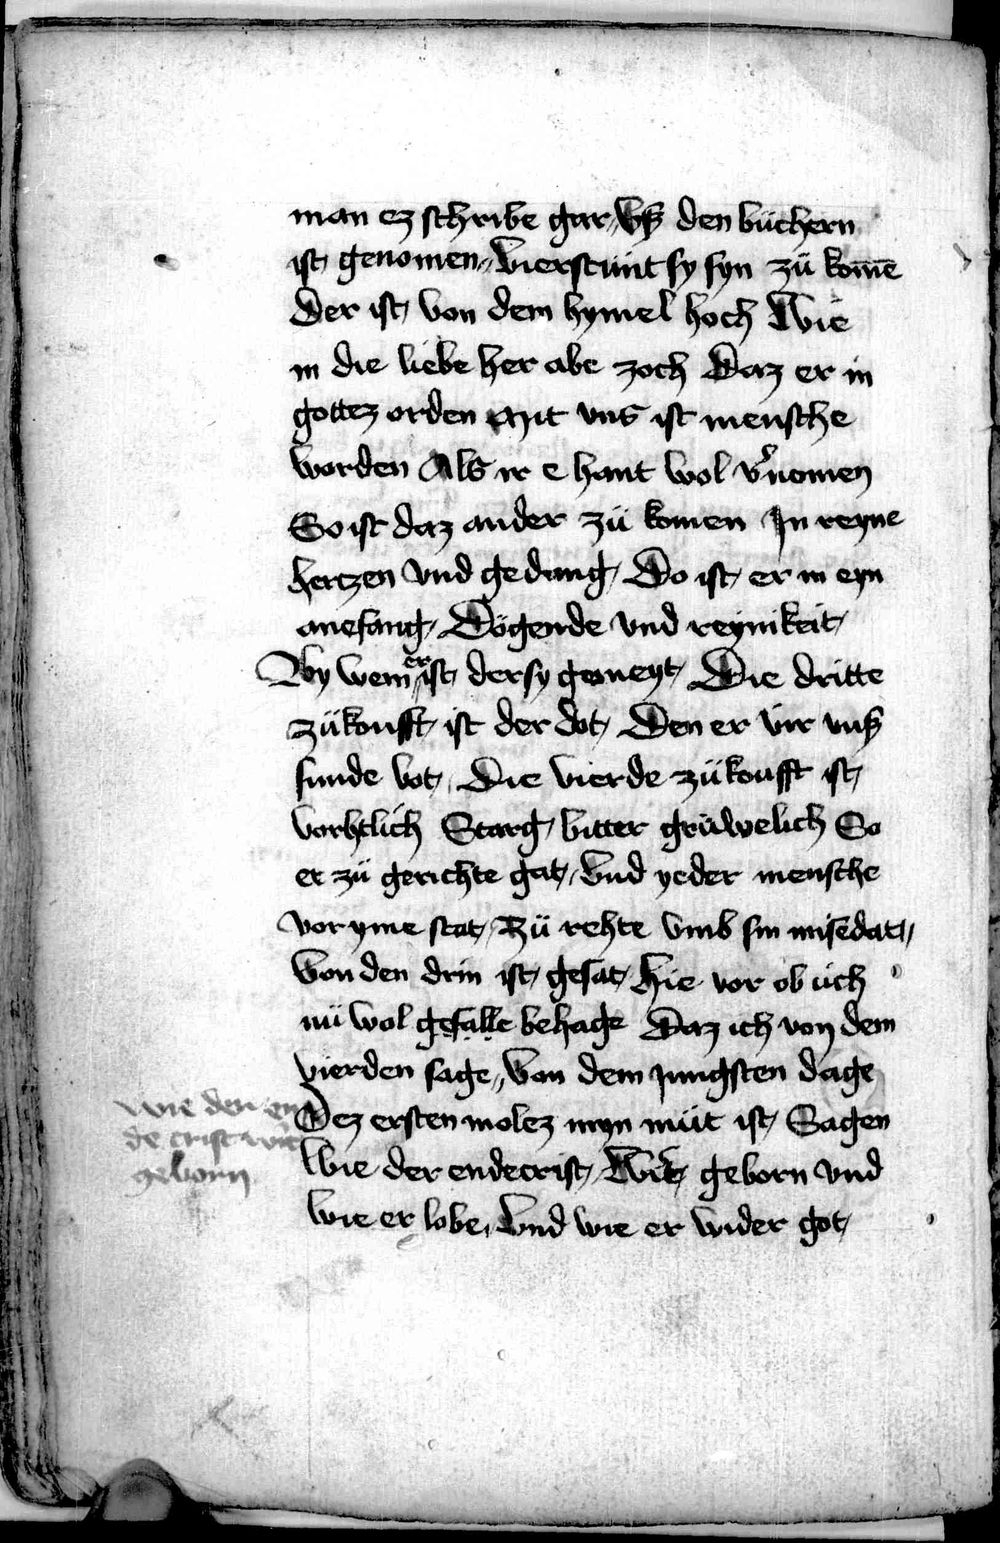 man ez schribe gar, vß den büchern
ist genomen, vierstunt sy syn zü kom̄e
Der ist von dem hymel hoch Wie
in die liebe her abe zoch Daz er in
gottez orden Mit vns ist mensche
worden Als ir e hant wol v̾nomen
So ist daz ander zü komen In reyne
hertzen vnd gedang, Do ist er in eyn
anefang, Dögende vnd reynikeit,
By wem er ist der sy gemeyt, Die dritte
zükonfft ist der dot, Den er vir vnß
sunde bot, Die vierde zükonfft ist,
vorhtlich Starg, bitter grüwelich So
er zü gerichte gat, Vnd yeder mensche
vor yme stat, Zü rehte vmb sin missedat,
Von den drin ist gesat, Hie vor ob üch
nü wol gefalle behage Daz ich von dem
vierden sage, Von dem Jungsten dage
Dez ersten molez myn müt ist, Sagen
Wie der endecrist, Wirt geborn vnd
Wie er lobe, Vnd wie er wider got,
Wie der en
de crist wirt
geborn